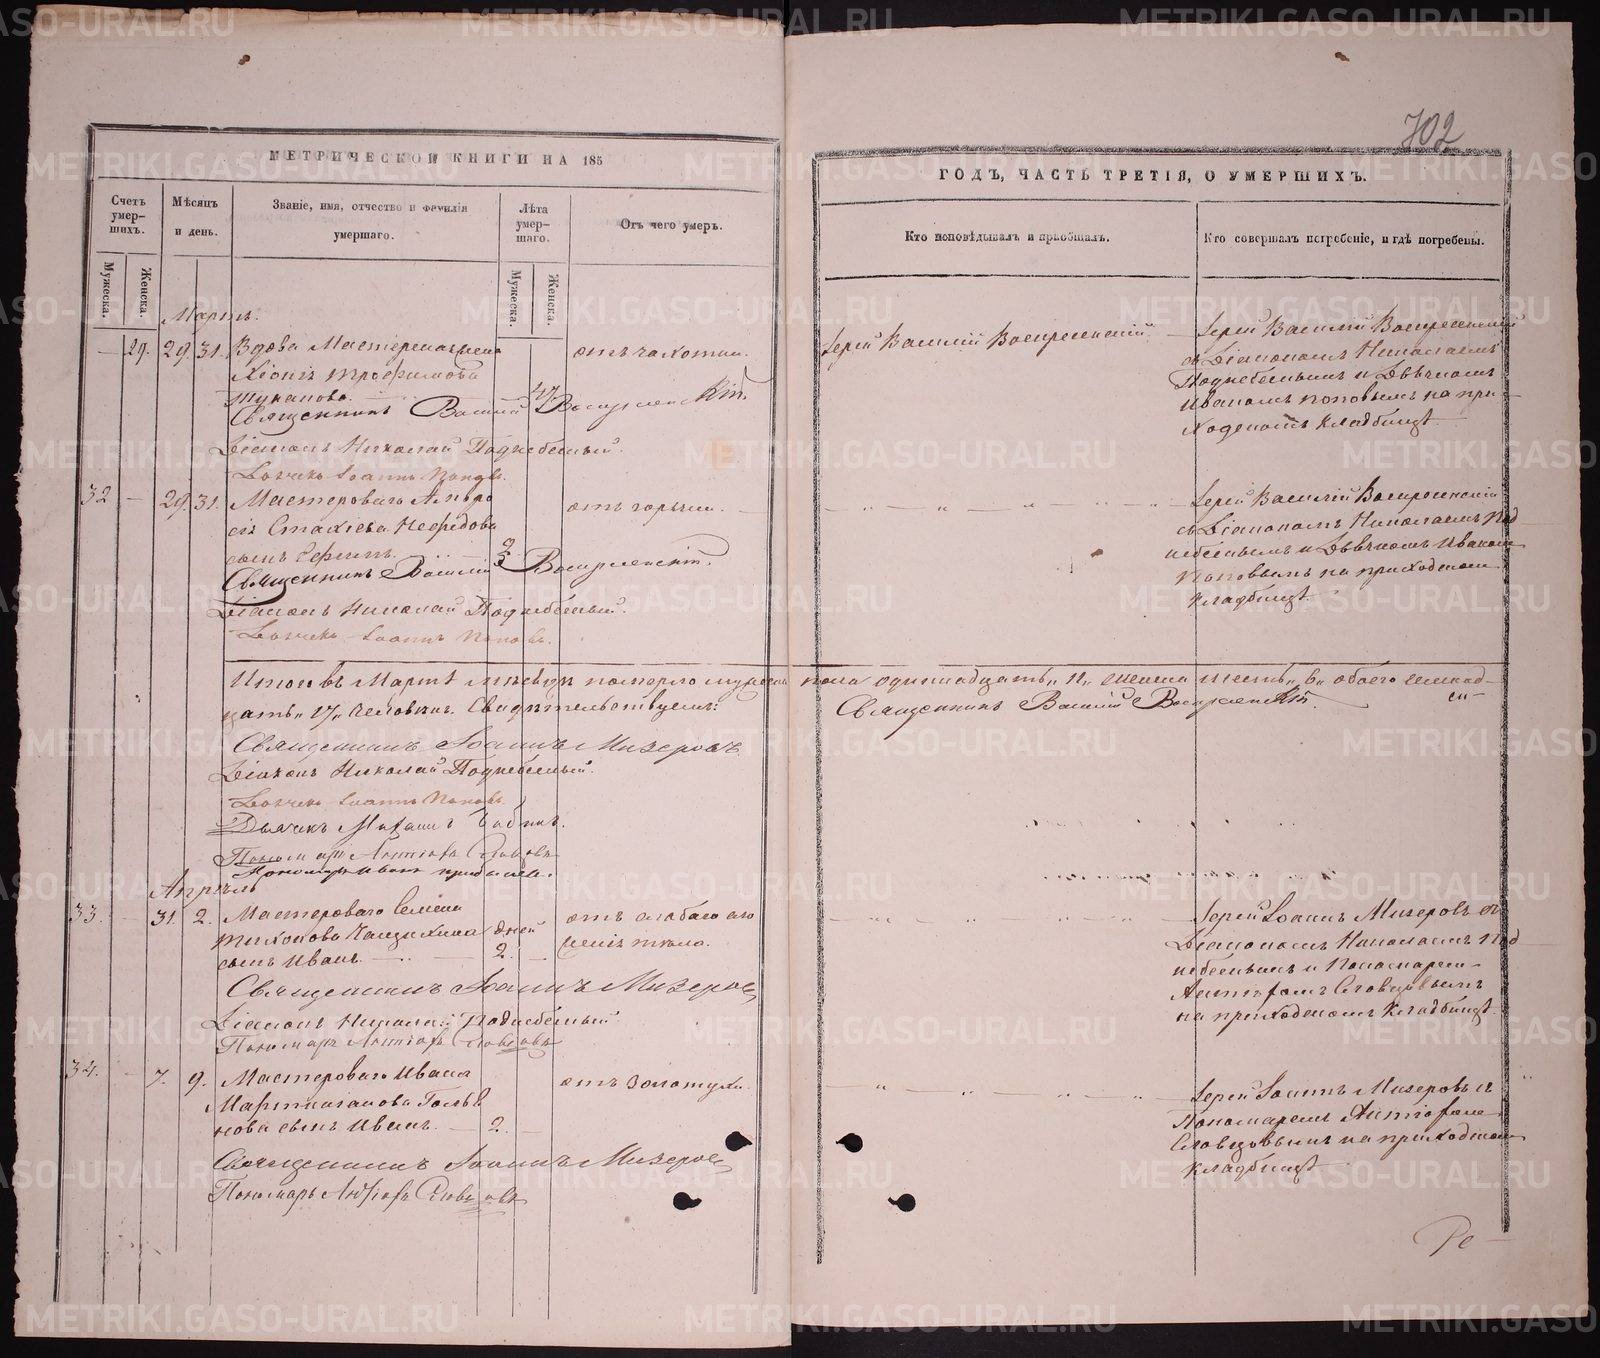 702
МЕТРИЧЕСКОЙ КНИГИ НА 185
ГОДЪ, ЧАСТЬ ТРЕТІЯ, О УМЕРШИХЪ.
Счетъ умер-шихъ.
Мѣсяцъ и день.
Званіе, имя, отчество и фамилія умершаго.
Лѣта умер-шаго.
Отъ чего умеръ.
Кто исповѣдывалъ и пріобщалъ.
Кто совершалъ погребеніе, и гдѣ погребены.
Мужеска.
Женска.
Мужеска.
Женска.
Мартъ.
29. 29 31. Вдова
Трофимова
47
отъ чахотки.
Священникъ Василій Воскресенскій
Діаконъ Николай Поднебесный.
Дьячекъ Іоаннъ Поповъ.
Іерей Василій Воскресенскій
Іерей Василій Воскресенскій
съ Діакономъ Николаемъ
Поднебеснымъ и Дьячкомъ
Иваномъ Поповымъ на при-
ходскомъ кладбищѣ
32 — 29. 31. Мастероваго
Нефедова
сынъ Ефимъ.
отъ горячки.
Священникъ Василій Воскресенскій.
Діаконъ Николай Поднебесный.
Дьячекъ Іоаннъ Поповъ.
Іерей Василій Воскресенскій
съ Діакономъ Николаемъ Под
небеснымъ и Дьячкомъ Иваномъ
Поповымъ на приходскомъ
кладбищѣ
Итого въ Мартѣ мѣсяцѣ померло мужеска пола одиннадцать „11„ женска шесть „6„ обоего семнад-
цать „17„ человѣкъ. Свидѣтельствуемъ:
Священникъ Василій Воскресенскій.
Священникъ Іоаннъ Мизеровъ
Діаконъ Николай Поднебесный.
Дьячекъ Іоаннъ Поповъ
Дьячекъ Михаилъ Бабинъ.
Пономарь Словцовъ
Пономарь Иванъ
Апрѣль
33. — 31. 2. Мастероваго Семена
Тихонова
сынъ Иванъ.
дней
2.
отъ слабаго сло
женія тѣла.
Священникъ Іоаннъ Мизеровъ
Діаконъ Николай Поднебесный
Пономарь Словцовъ
Іерей Іоаннъ Мизеровъ съ
Діакономъ Николаемъ Под
небеснымъ и Пономаремъ
Словцовымъ
на приходскомъ кладбищѣ.
34. — 7. 9. Мастероваго Ивана
нова сынъ Иванъ. — 2.
отъ золотухи.
Священникъ Іоаннъ Мизеровъ
Пономарь Словцовъ
Іерей Іоаннъ Мизеровъ съ
Пономаремъ
Словцовымъ на приходскомъ
кладбищѣ
Ре—
METRIKI.GASO-URAL.RU